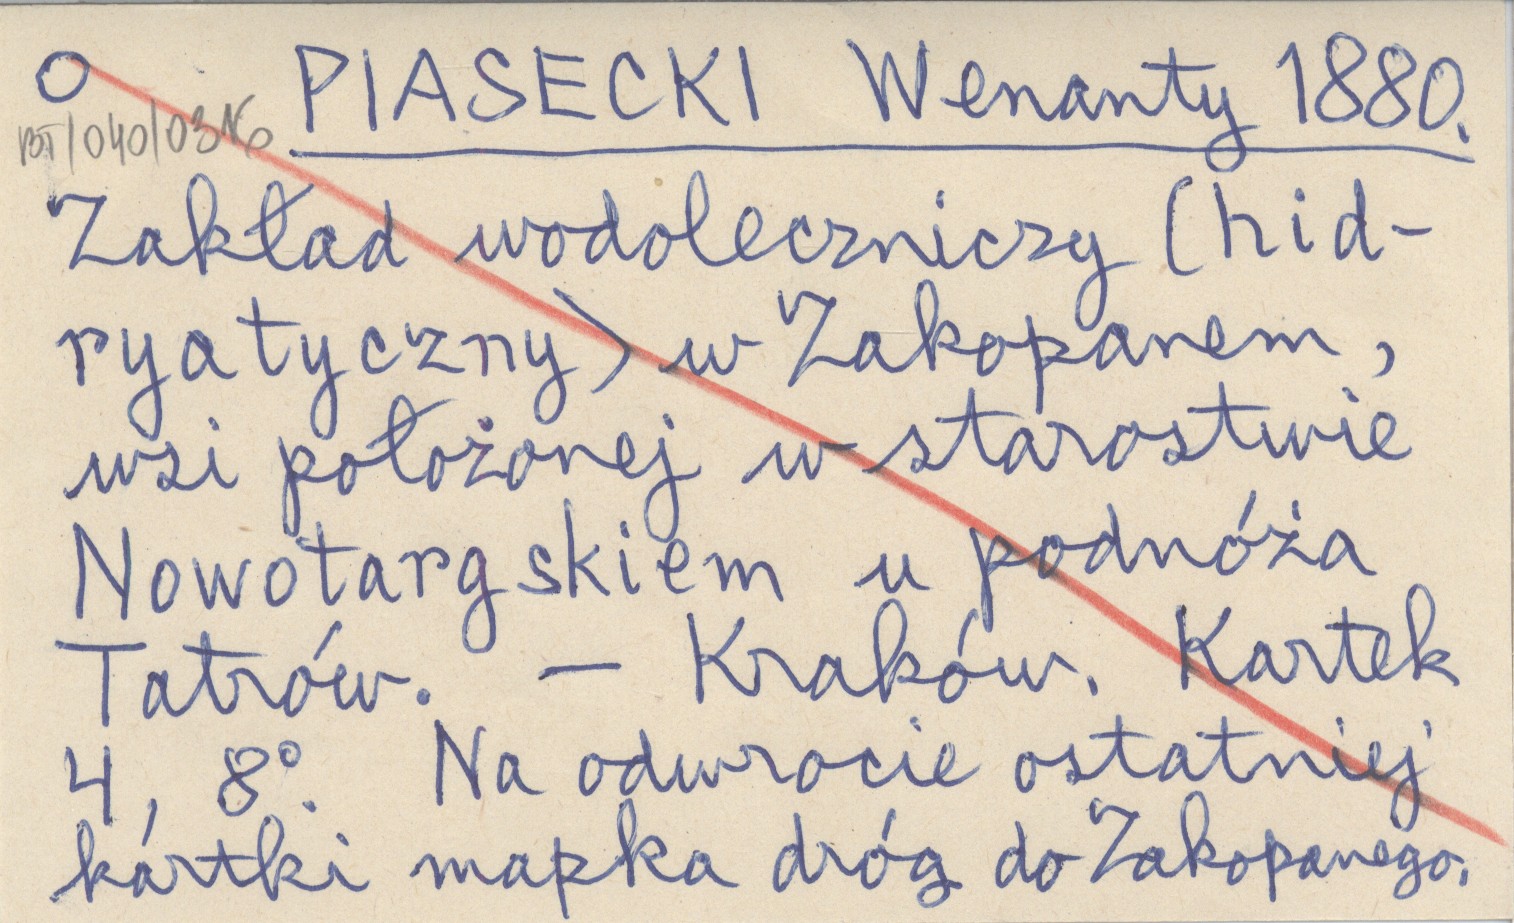 O PIASECKI Wenanty 1880.
BT/040/03
Zakład wodoleczniczy (hid-
ryatyczny) w Zakopanem,
wsi położonej w starostwie
Nowotargskiem u podnóża
Tatrów. — Kraków. Kartek
4, 8°. Na odwrocie ostatniej
kártki mapka dróg do Zakopanego.